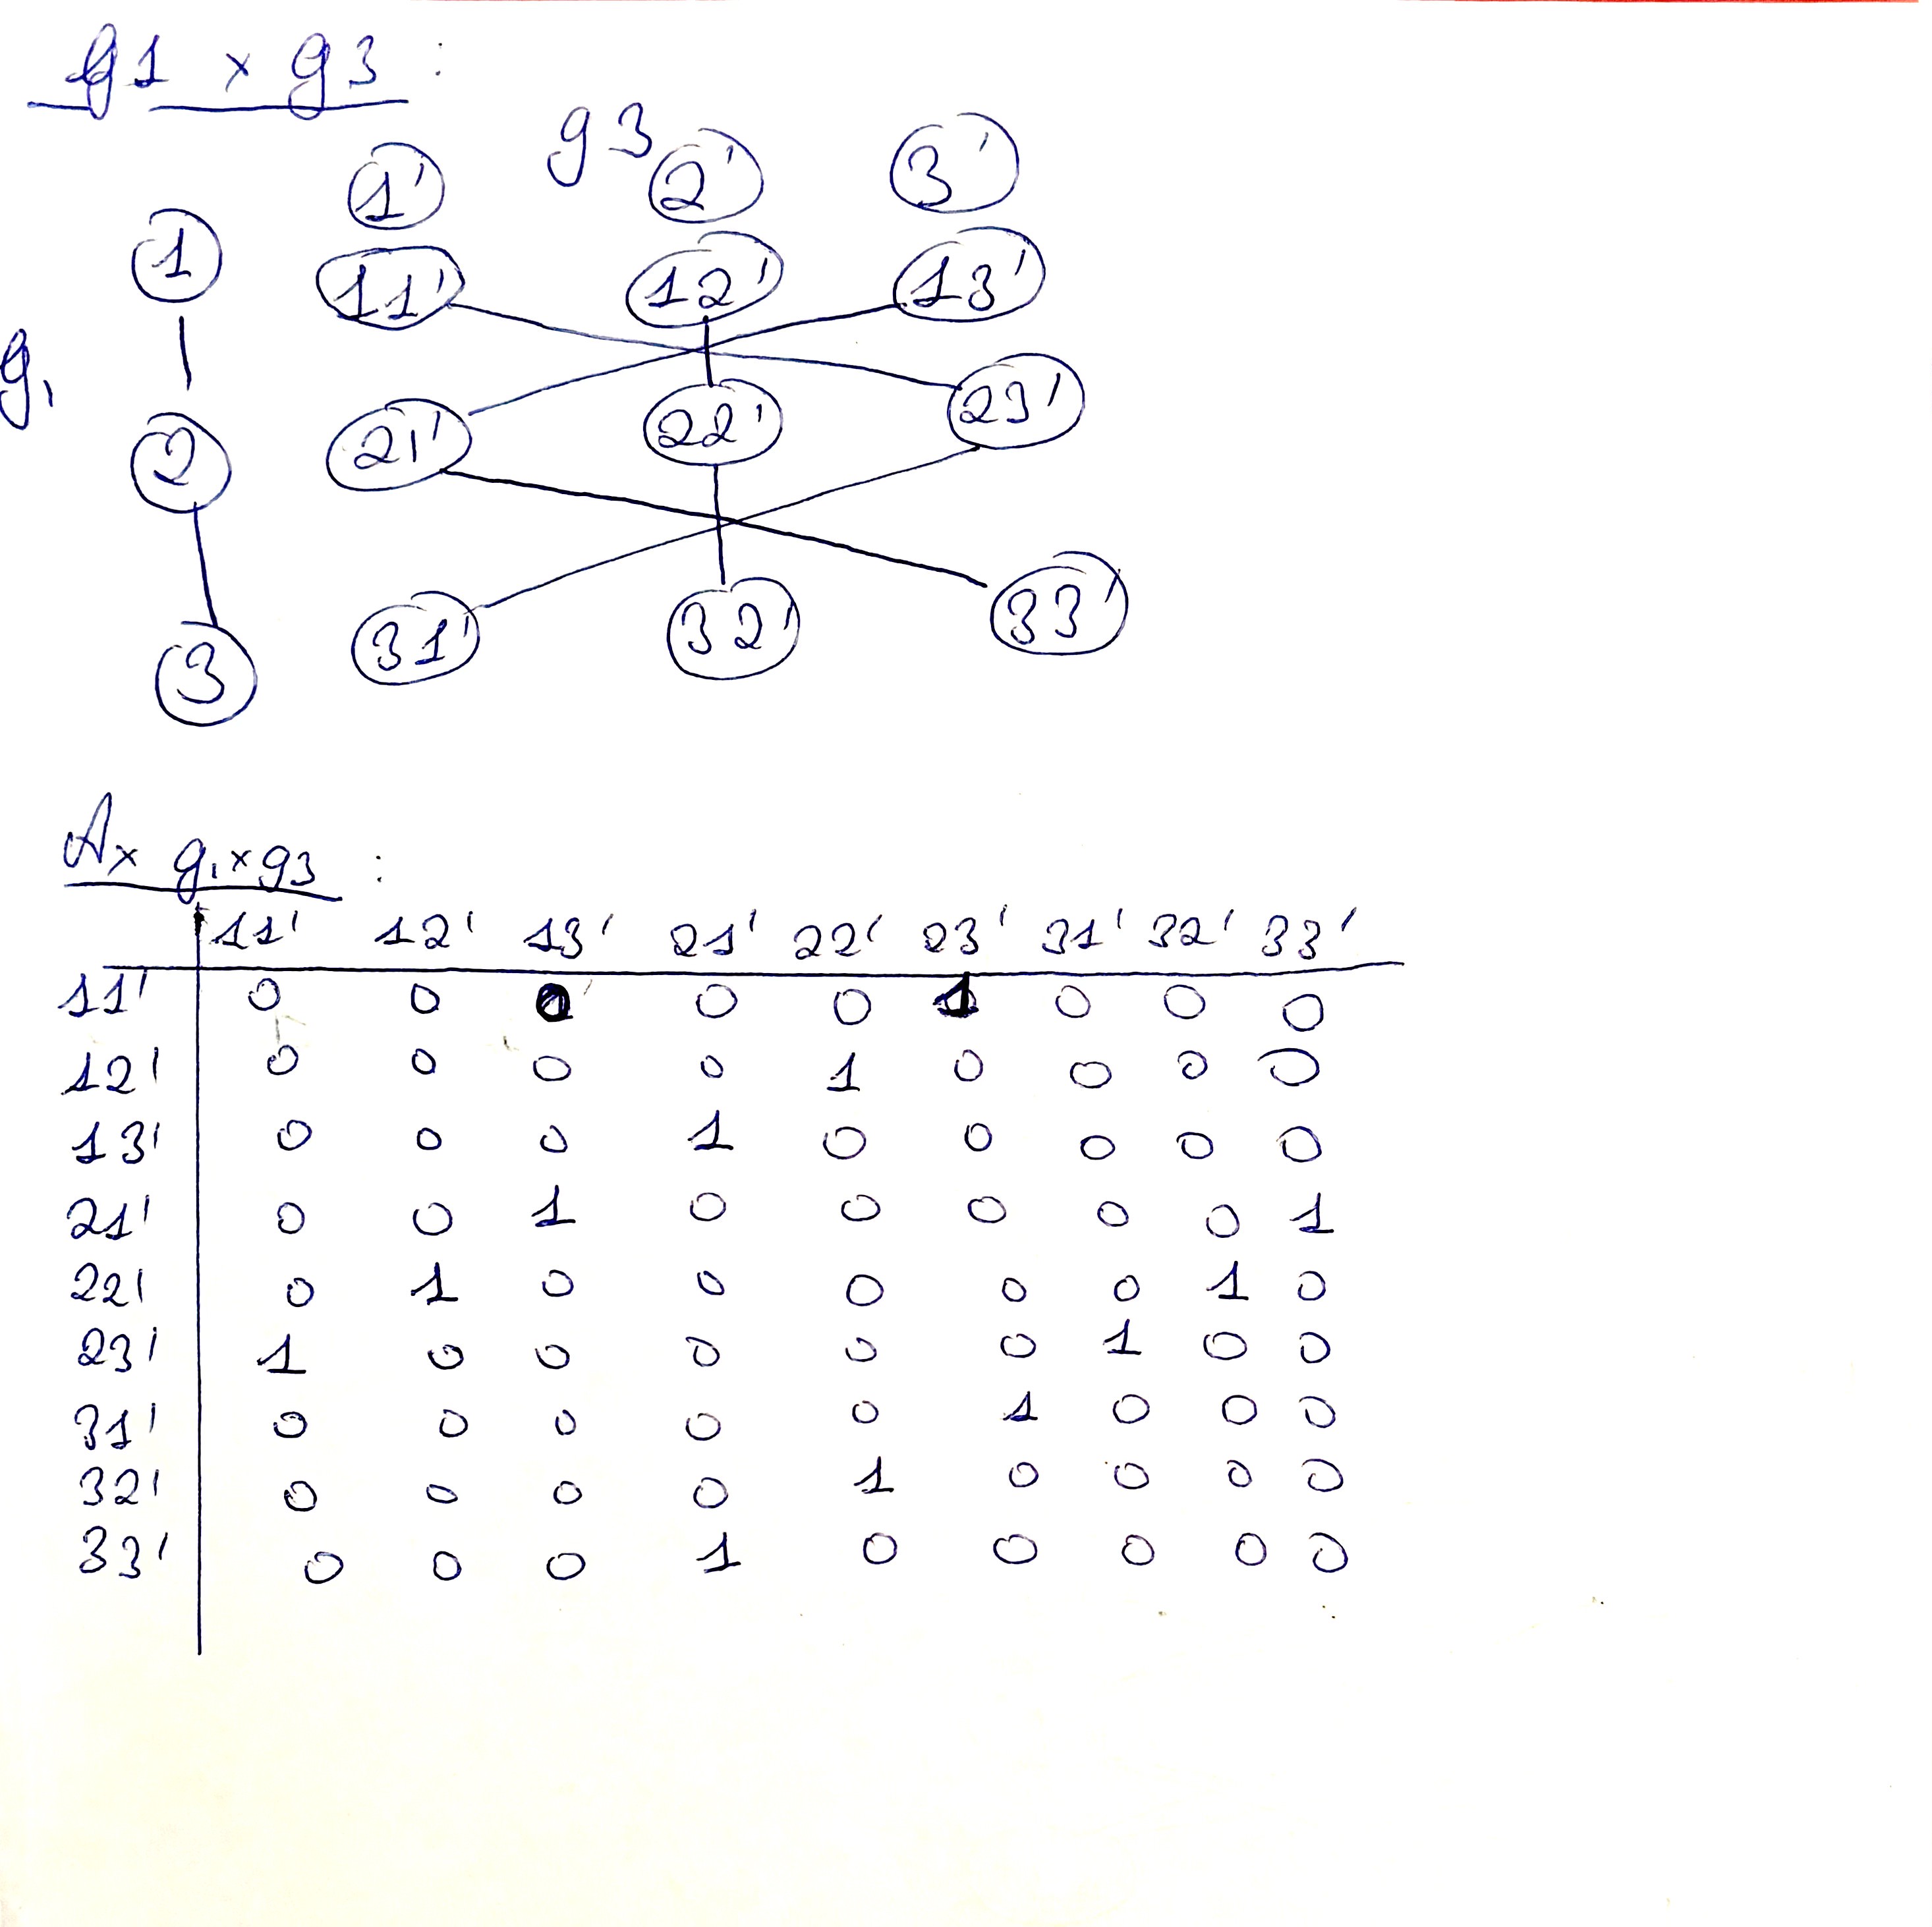 g1 x g3 :
g3
1' 2' 3'
1 11' 12' 13'
g1
2 21' 22' 23'
3 31' 32' 33'
Ax g1xg3 :
11' 12' 13' 21' 22' 23' 31' 32' 33'
11' 0 0 0 0 1 0 0 0
12' 0 0 0 0 1 0 0 0 0
13' 0 0 0 1 0 0 0 0 0
21' 0 0 1 0 0 0 0 0 1
22' 0 1 0 0 0 0 0 1 0
23' 1 0 0 0 0 0 1 0 0
31' 0 0 0 0 0 1 0 0 0
32' 0 0 0 0 1 0 0 0 0
33' 0 0 0 1 0 0 0 0 0